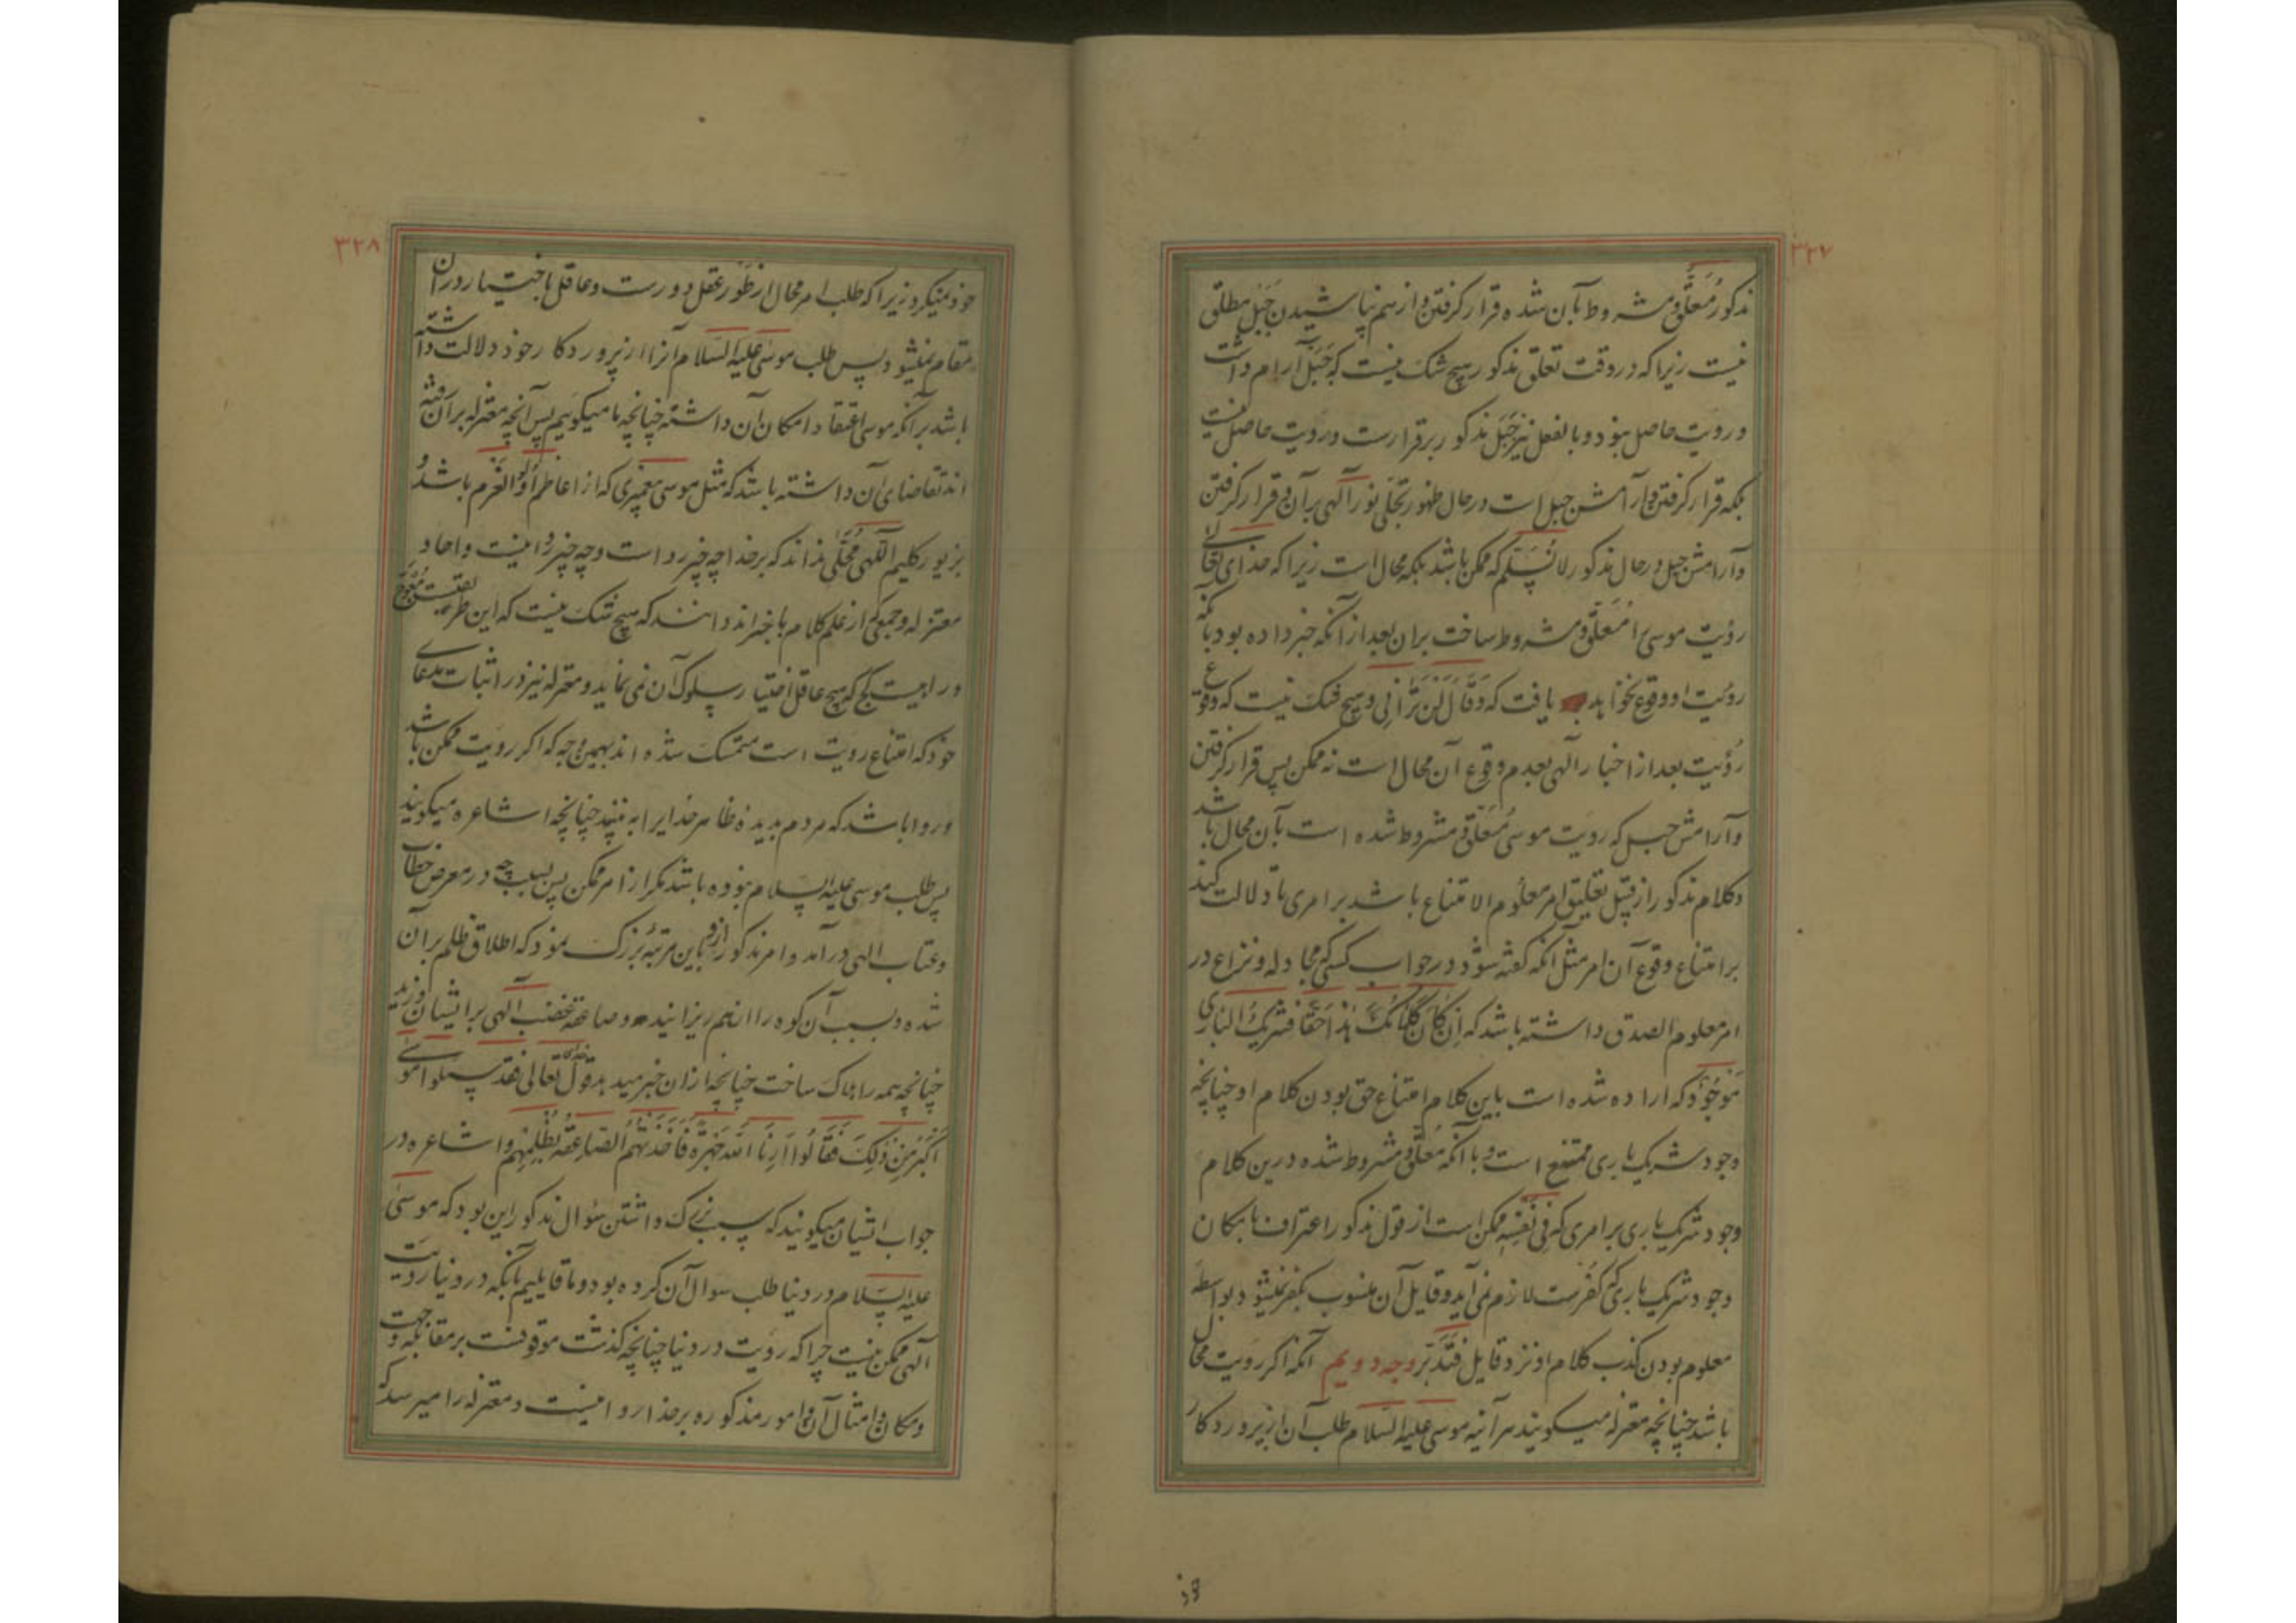 ۳۲۷
مذکور مُعَلَّق و مشروط بآن شده قرار گرفتن و از هم نپاشیدن جَبَل مطلق
نیست زیرا که در وقت تعلق مذکور هیچ شک نیست که جَبَل آرام داشت
و رویت حاصل نبود و بالفعل نیز جَبَل مذکور برقرارست و رویت حاصل نیست
بلکه قرار گرفتن و آرامش جبل است در حال ظهور تجلّی نور آلهی بر آن و قرار گرفتن
و آرامش جبل در حال مذکور لا نُسَلِّم که ممکن باشد بلکه محال است زیرا که خدای تعالی
رؤیت موسی را مُعَلَّق و مشروط ساخت بر ان بعد از آنکه خبر داده بود بآنکه
رؤیت او وقوع نخواهد یافت که وَقَالَ لَنْ تَرَانِی و هیچ شک نیست که وقوع
رؤیت بعد از اخبار آلهی بعدم وقوع آن محال است نه ممکن پس قرار گرفتن
و آرامش جبل که رویت موسی مُعَلَّق و مشروط شده است بآن محال باشد
و کلام مذکور از قبیل تعلیق امر معلوم الامتناع باشد بر امری تا دلالت کند
بر امتناع وقوع آن امر مثل آنکه گفته شود در جواب کسی که مجادله و نزاع در
امر معلوم الصدق داشته باشد که اِنْ کَانَ کَلَامُکَ هٰذَا حَقًّا فَشَرِیکُ الْبَارِی
مَوْجُودٌ که اراده شده است باین کلام امتناع حق بودن کلام او چنانچه
وجود شریک باری ممتنع است و با آنکه مُعَلَّق و مشروط شده درین کلام
وجود شریک باری بر امری که فِی نَفْسِهِ ممکن است از قول مذکور اعتراف بامکان
وجود شریک باری که کفرست لازم نمی آید و قایل آن منسوب بکفر نمیشود بواسطه
معلوم بودن کذب کلام او نزد قایل فَتَدَبَّر وجه دویم آنکه اگر رویت محال
باشد چنانچه معتزله میگویند هر آینه موسی علیه السّلام طلب آن از پروردکار
۳۲۸
خود نمیکرد زیرا که طلب امر محال از طَور عقل دورست و عاقل باختیار در ان
مقام نمیشود پس طلب موسی علیه السّلام آنرا از پروردکار خود دلالت داشته
باشد بر آنکه موسی اعتقاد امکان آن داشته چنانچه ما میکوییم پس آنچه معتزله بر آن رفته
اند تقاضای آن داشته باشد که مثل موسی پیغمبری که از اعاظم اُولُو الْعَزم باشد و
بزیور کلیم اللّهی مُحَلّٰی نداند که بر خدا چه چیز رواست و چه چیز روا نیست و احاد
معتزله و جمعی که از علم کلام باخبراند دانند که هیچ شک نیست که این طریقیست مُعْوَجّ
و راهیست کج که هیچ عاقل اختیار سلوک آن نمی نماید و معتزله نیز در اثبات مدعای
خود که امتناع رویت است متمسک شده اند بهمین وجه که اکر رویت ممکن باشد
و روا باشد که مردم بدیده ظاهر خدایرا به بینند چنانچه اشاعره میکویند
پس طلب موسی علیه السلام نبوده باشد مکر از امر ممکن پس بسبب چه در معرض خطاب
و عتاب الهی در آمد و امر مذکور ازو باین مرتبهٔ بزرک نمود که اطلاق ظلم بر آن
شده و بسبب آن کوه را از هم ریزانید و صاعقه غضب آلهی بر ایشان وزید
چنانچه همه را هلاک ساخت چنانچه از ان خبر میدهد قول خدای تعالی فقد سالوا موسی
اَکْبَرَ مِنْ ذٰلِکَ فَقَالُوا اَرِنَا اللّٰهَ جَهْرَةً فَاَخَذَتْهُمُ الصَّاعِقَةُ بِظُلْمِهِمْ و اشاعره در
جواب ایشان میکویند که سبب بزرک داشتن سؤال مذکور این بود که موسی
علیه السّلام در دنیا طلب سوال آن کرده بود و ما قایلیم بآنکه در دنیا رویت
آلهی ممکن نیست چرا که رویت در دنیا چنانچه کذشت موقوفست بر مقابله و جهت
و مکان و امثال آن و امور مذکوره بر خدا روا نیست و معتزله را میرسد که